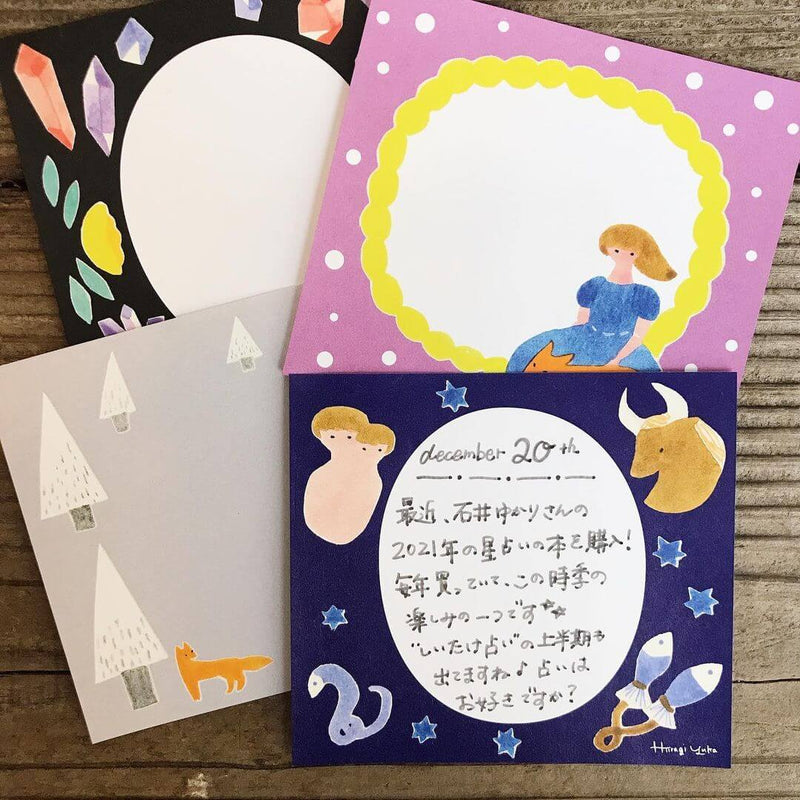 december 20th
最近、石井ゆかりさんの
2021年の星占いの本を購入!
毎年買っていて、この時季の
楽しみの一つです☆☆
"しいたけ占い"の上半期も
出てますね♪占いは
お好きですか?
Hiragi Yuka